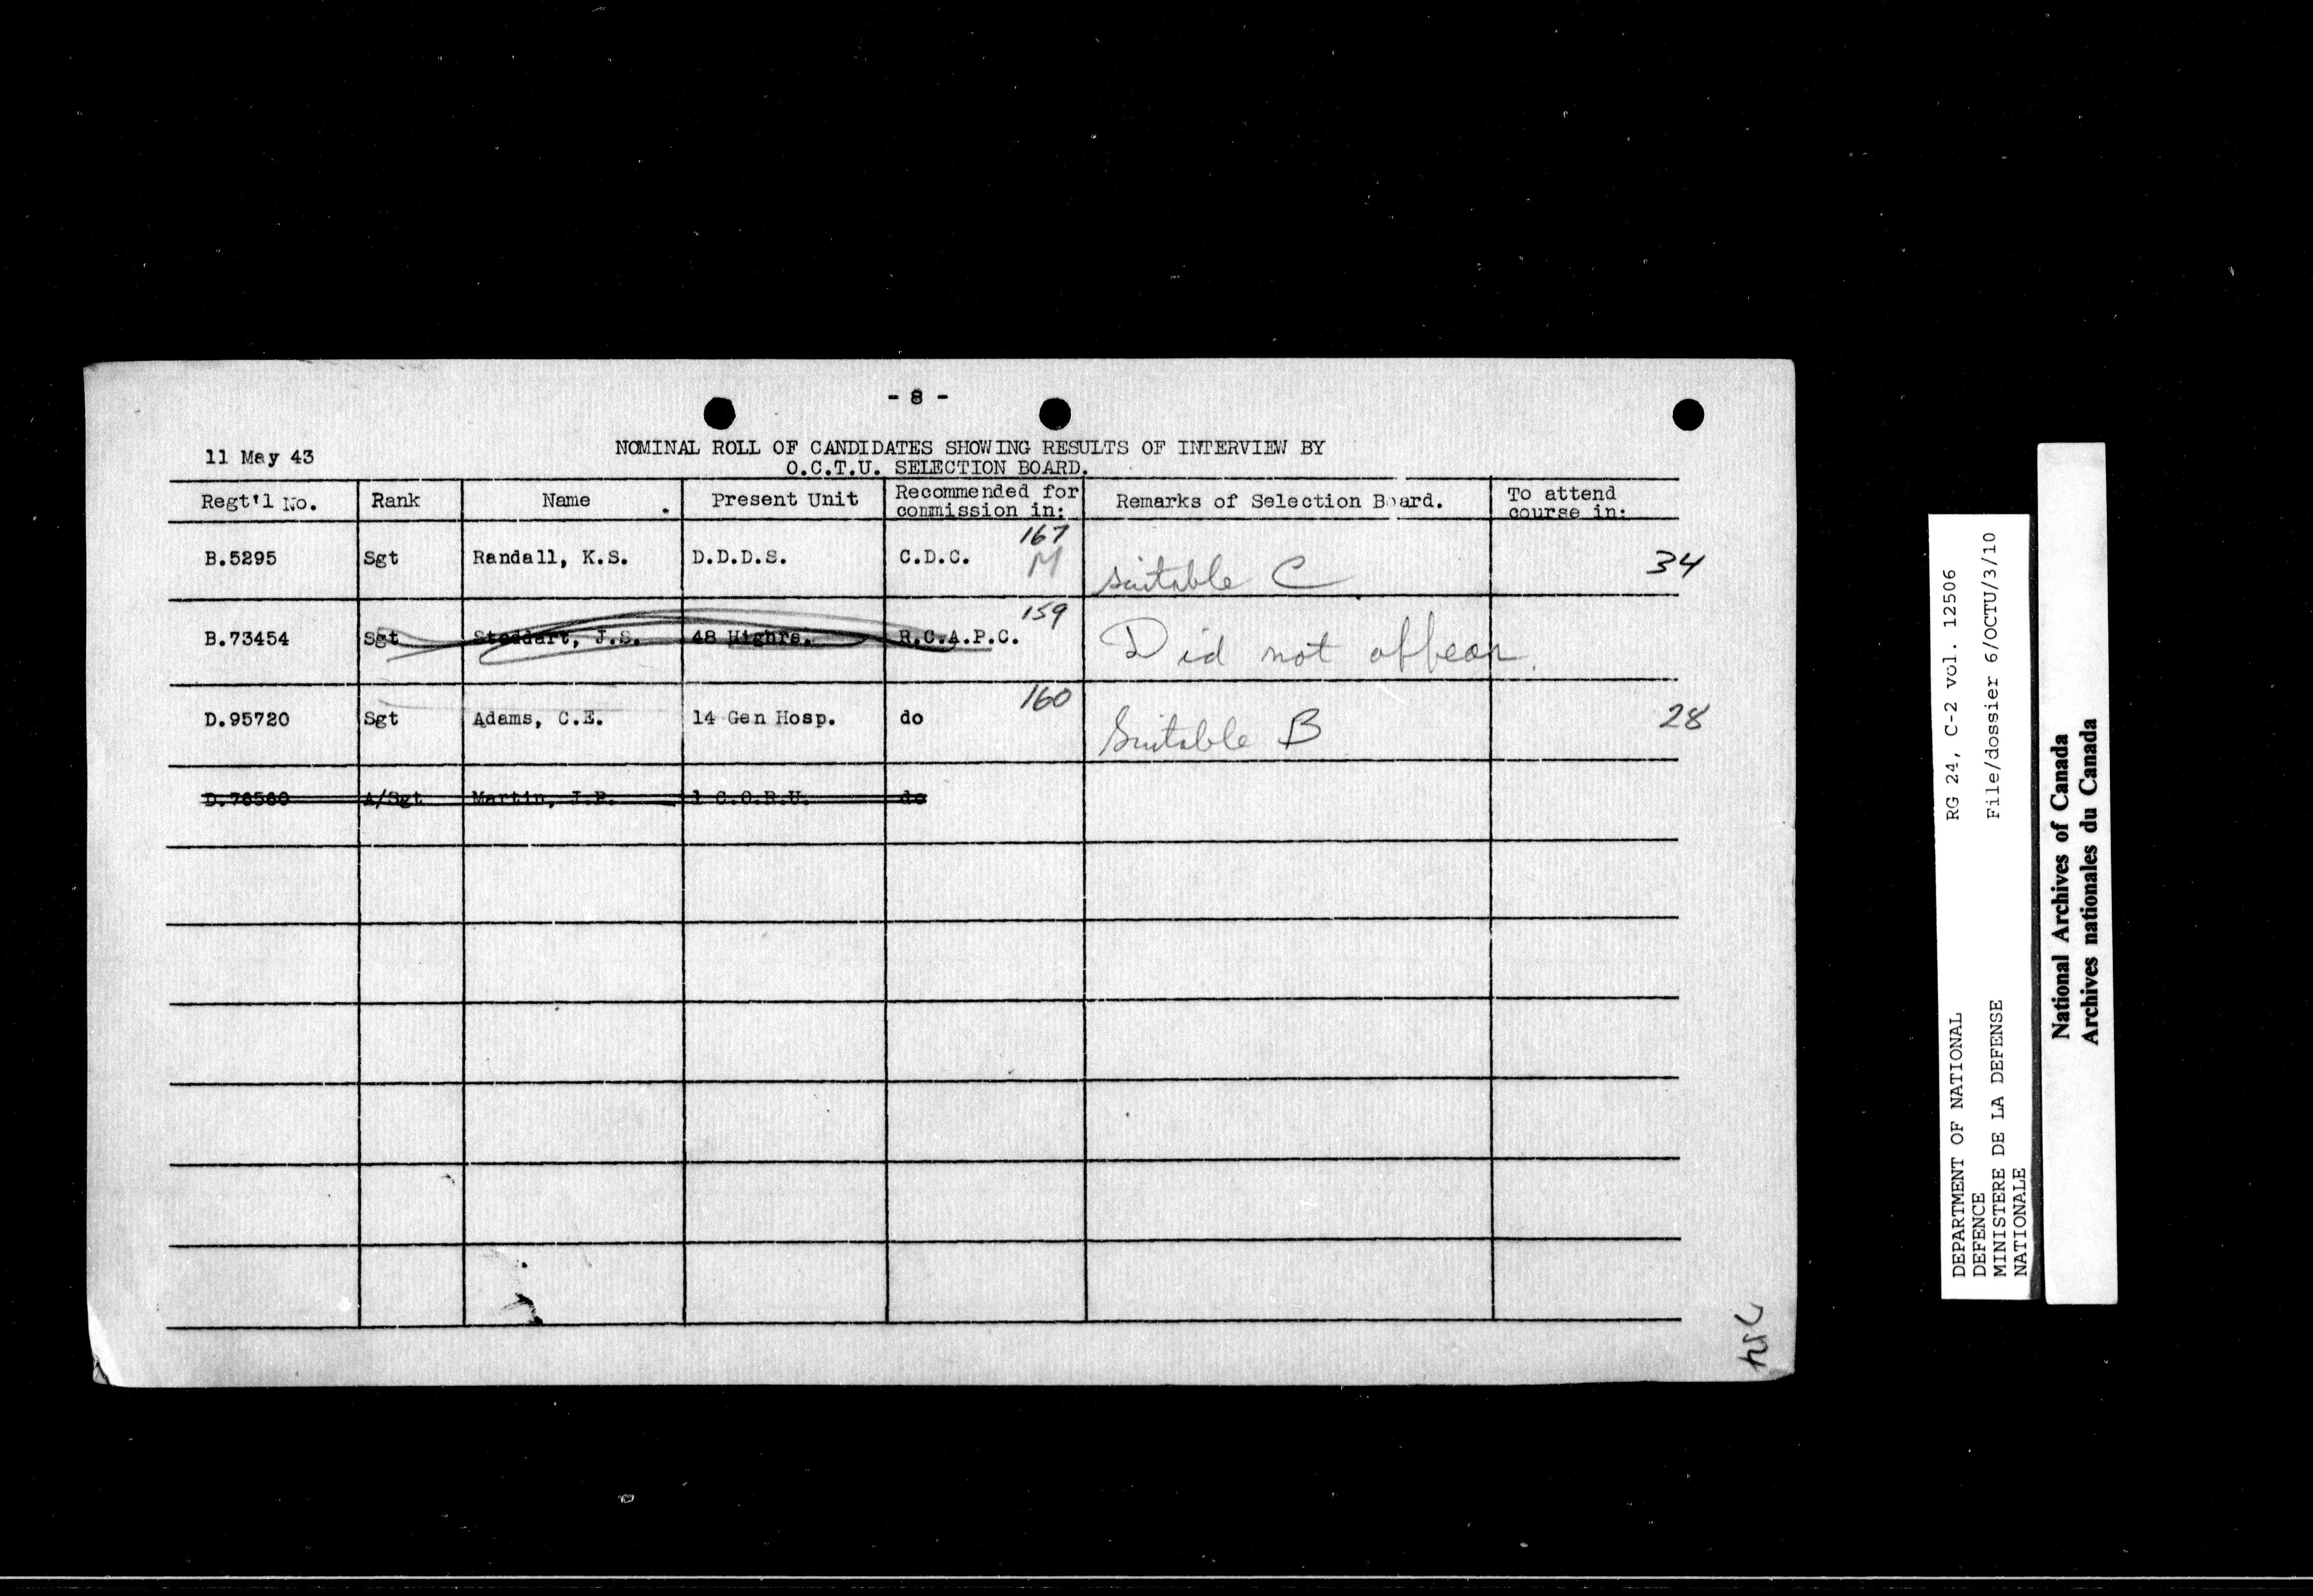 - 8 -
11 May 43
NOMINAL ROLL OF CANDIDATES SHOWING RESULTS OF INTERVIEW BY
O.C.T.U. SELECTION BOARD.
Regt'l No. Rank Name Present Unit Recommended for commission in: Remarks of Selection Board. To attend course in:
167
B.5295 Sgt Randall, K.S. D.D.D.S. C.D.C. M suitable C 34
159
B.73454 Sgt Stoddart, J.S. 48 Highrs. R.C.A.P.C. Did not appear.
160
D.95720 Sgt Adams, C.E. 14 Gen Hosp. do Suitable B 28
A/Sgt Martin, J.P. 1 C.O.R.U. do
DEPARTMENT OF NATIONAL
DEFENCE
MINISTERE DE LA DEFENSE
NATIONALE
RG 24, C-2 vol. 12506
File/dossier 6/OCTU/3/10
National Archives of Canada
Archives nationales du Canada